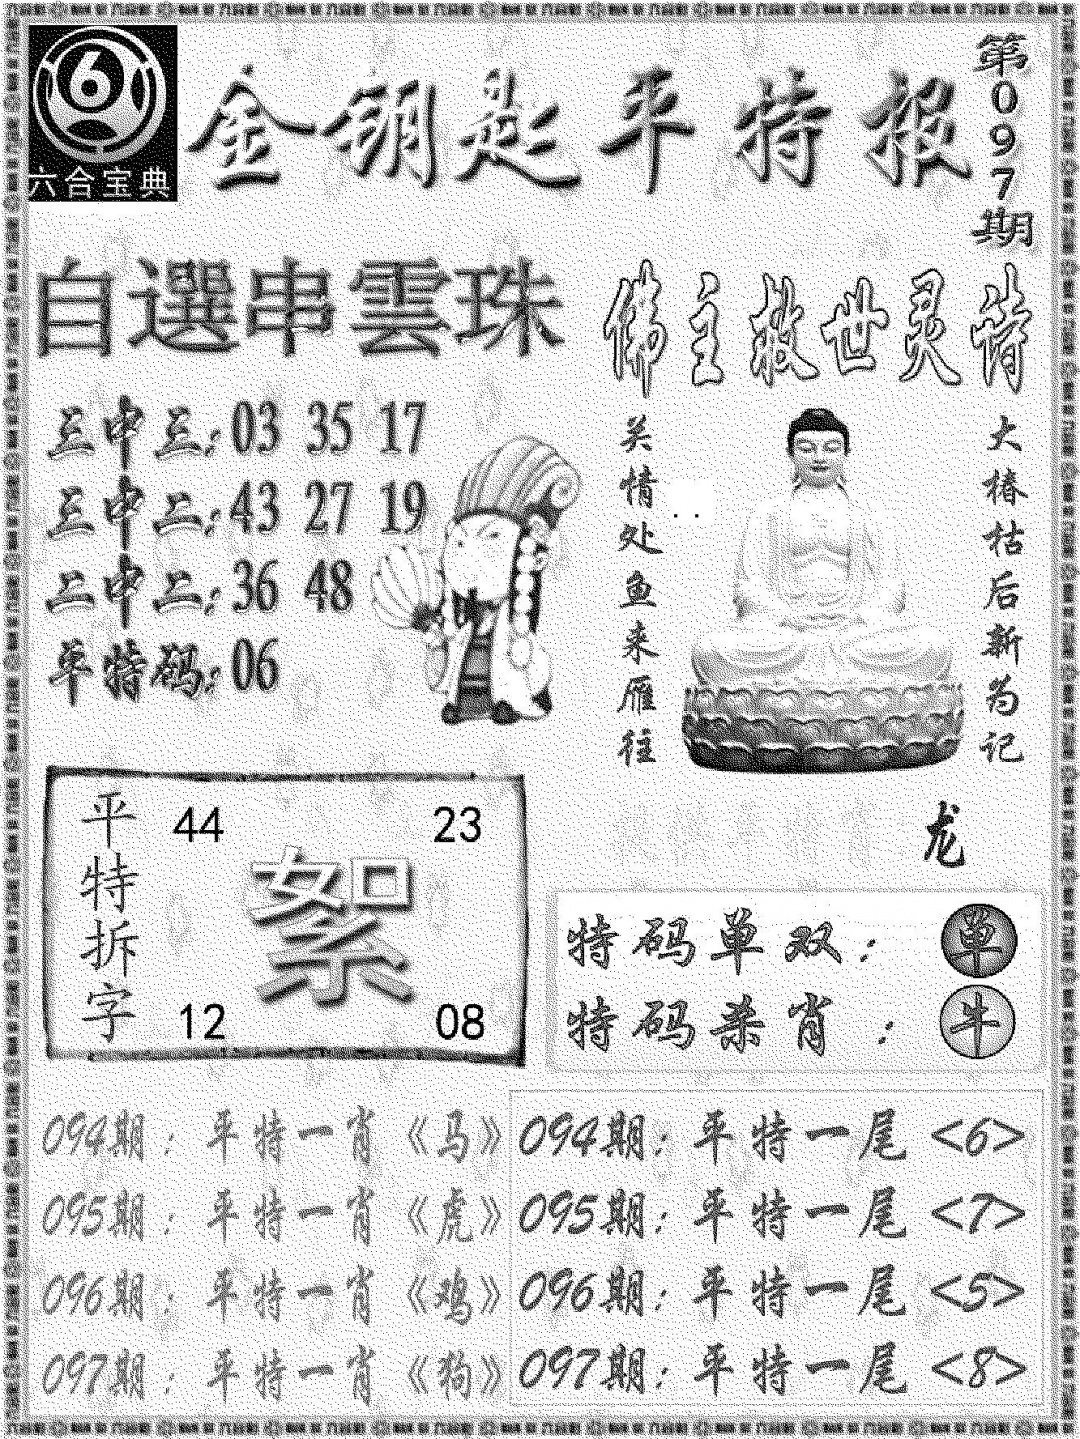 6
六合宝典
金钥匙平特报
第097期
自選串雲珠
三中三:03 35 17
三中二:43 27 19
二中二:36 48
平特码:06
佛主救世灵诗
大椿枯后新为记
关情处鱼来雁往
龙
平特拆字
44 23
絮
12 08
特码单双: 单
特码杀肖: 牛
094期: 平特一肖《马》
095期: 平特一肖《虎》
096期: 平特一肖《鸡》
097期: 平特一肖《狗》
094期: 平特一尾 <6>
095期: 平特一尾 <7>
096期: 平特一尾 <5>
097期: 平特一尾 <8>